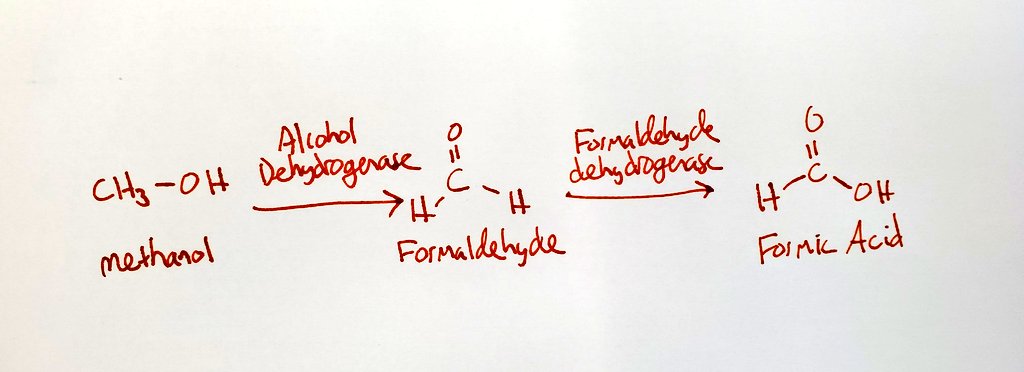 CH3-OH
methanol
Alcohol
Dehydrogenase
O
C
H H
Formaldehyde
Formaldehyde
dehydrogenase
O
C
H OH
Formic Acid